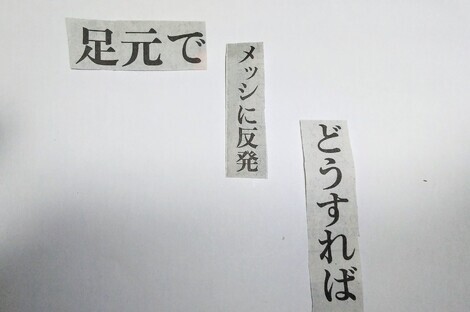 足元で
メッシに反発
どうすれば